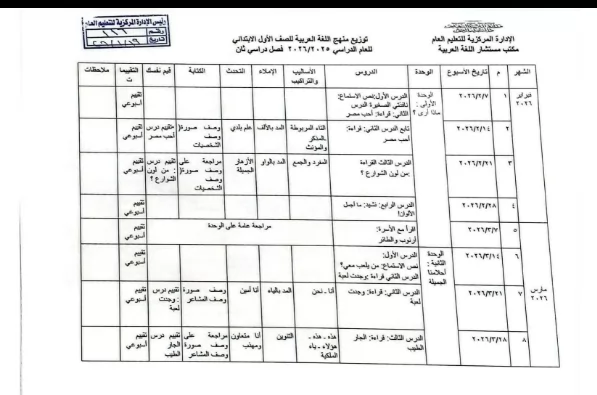 رئيس الإدارة المركزية للتعليم العام
رقم
تاريخ
الإدارة المركزية للتعليم العام
مكتب مستشار اللغة العربية
توزيع منهج اللغة العربية للصف الأول الابتدائي
للعام الدراسي ٢٠٢٦/٢٠٢٥ فصل دراسي ثان
الشهر م تاريخ الأسبوع الوحدة الدروس الأساليب والتراكيب الإملاء التحدث الكتابة قيم نفسك التقييمات ملاحظات
فبراير ٢٠٢٦ ١ ٢٠٢٦/٢/٧ الوحدة الأولى: ماذا أرى؟ الدرس الأول: نص الاستماع: نافذتي الصغيرة الدرس الثاني: قراءة: أحب مصر تقييم أسبوعي
٢ ٢٠٢٦/٢/١٤ تابع الدرس الثاني: قراءة: أحب مصر التاء المربوطة المذكر والمؤنث المد بالألف علم بلدي وصف صورة( وصف الشخصيات تقييم درس أحب مصر تقييم أسبوعي
٣ ٢٠٢٦/٢/٢١ الدرس الثالث القراءة :من لون الشوارع؟ المفرد والجمع المد بالواو الأزهار الجميلة مراجعة على وصف صورة( وصف الشخصيات تقييم درس : من لون الشوارع؟ تقييم أسبوعي
٤ ٢٠٢٦/٢/٢٨ الدرس الرابع: نشيد: ما أجمل الألوان! تقييم أسبوعي
مارس ٢٠٢٦ ٥ ٢٠٢٦/٣/٧ اقرأ مع الأسرة: أرنوب والطائر مراجعة عامة على الوحدة تقييم أسبوعي
٦ ٢٠٢٦/٣/١٤ الوحدة الثانية: أحلامنا الجميلة الدرس الأول: نص الاستماع: من يلعب معي؟ الدرس الثاني قراءة :وجدت لعبة تقييم أسبوعي
٧ ٢٠٢٦/٣/٢١ الدرس الثاني: قراءة: وجدت لعبة أنا - نحن المد بالياء أنا أمين وصف صورة وصف المشاعر تقييم درس : وجدت لعبة تقييم أسبوعي
٨ ٢٠٢٦/٣/٢٨ الدرس الثالث: قراءة: الجار الطيب هذه - هذه - هؤلاء - ياء الملكية التنوين أنا متعاون ومهذب مراجعة على وصف صورة وصف المشاعر تقييم درس الجار الطيب تقييم أسبوعي